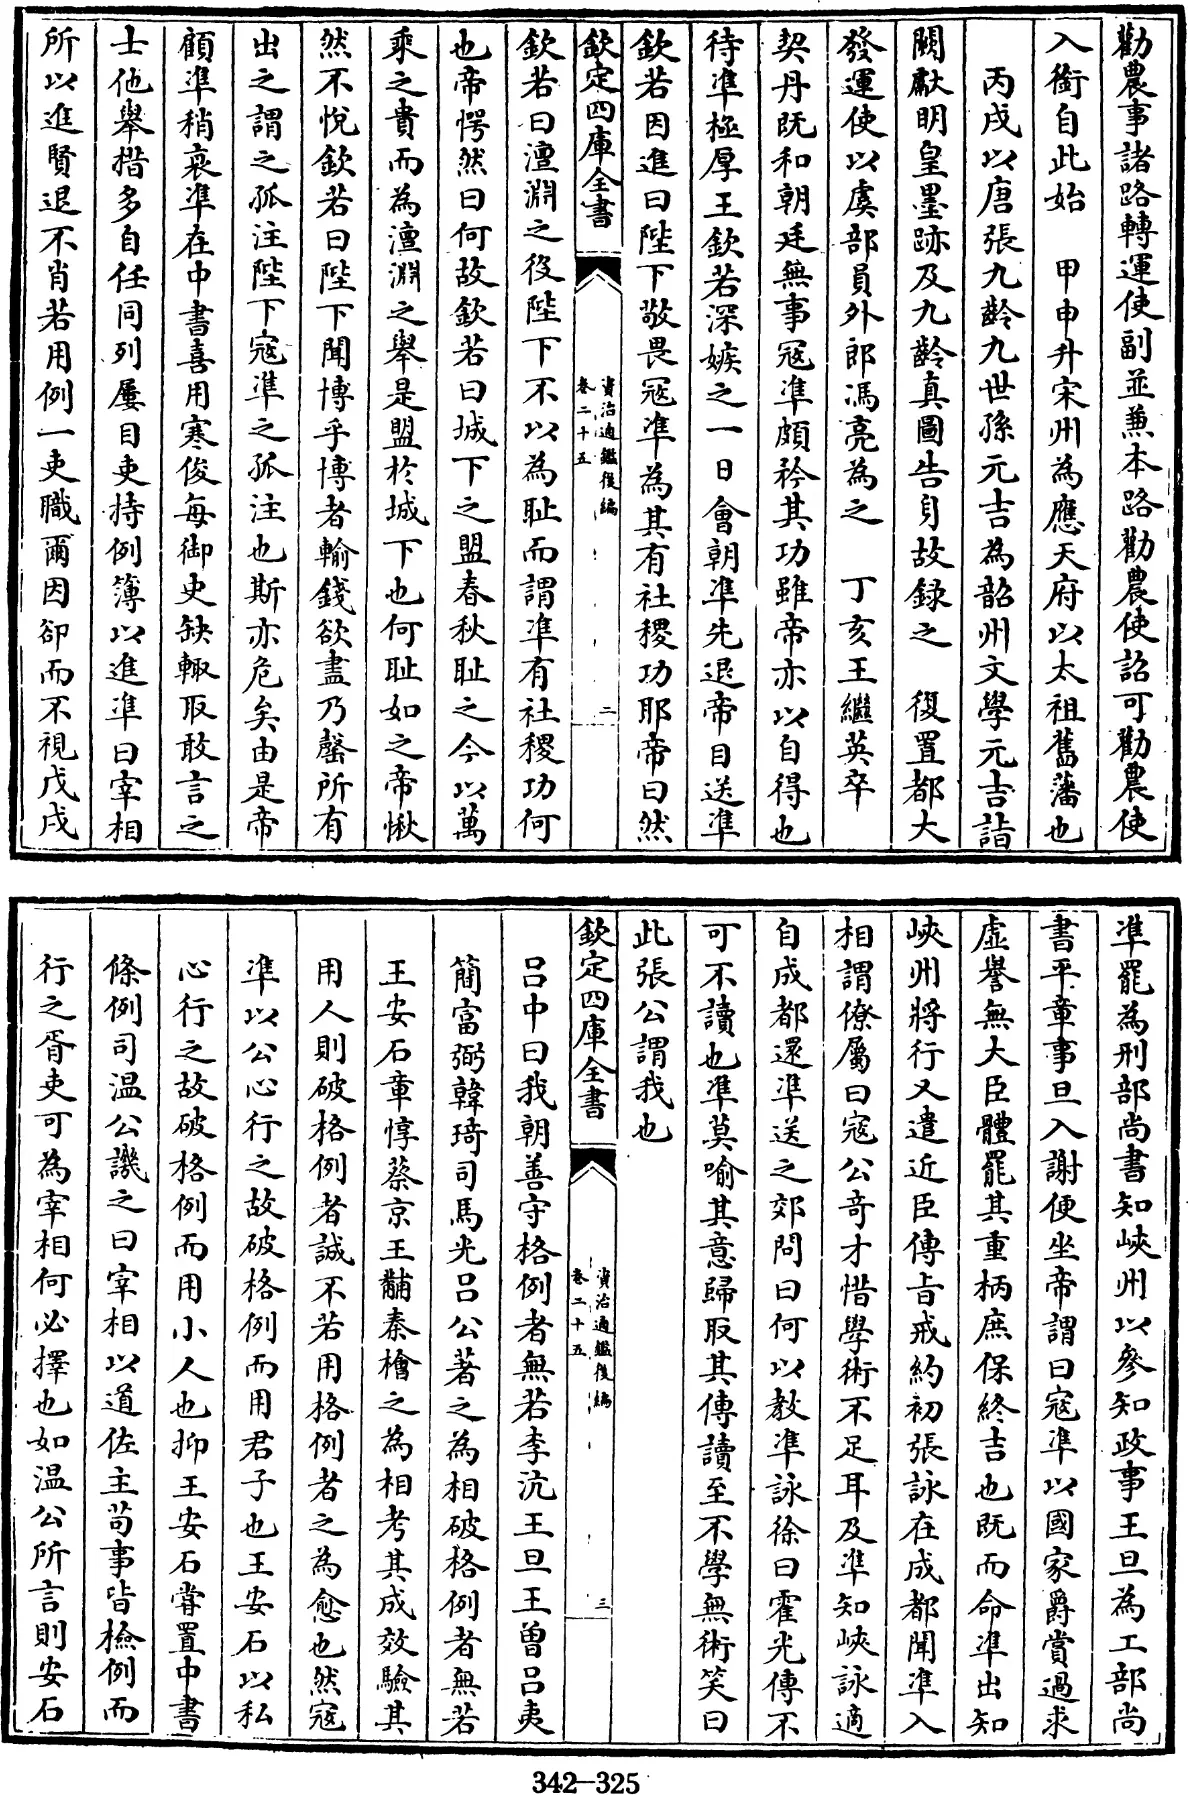 勸農事諸路轉運使副並兼本路勸農使詔可勸農使
入銜自此始　甲申升宋州為應天府以太祖舊藩也
丙戌以唐張九齡九世孫元吉為韶州文學元吉詣
闕獻明皇墨跡及九齡真圖告身故録之　復置都大
發運使以虞部員外郎馮亮為之　丁亥王繼英卒
契丹既和朝廷無事寇準頗矜其功雖帝亦以自得也
待準極厚王欽若深嫉之一日會朝準先退帝目送準
欽若因進曰陛下敬畏寇準為其有社稷功耶帝曰然
欽定四庫全書
資治通鑑後編
卷二十五
二
欽若曰澶淵之役陛下不以為恥而謂準有社稷功何
也帝愕然曰何故欽若曰城下之盟春秋恥之今以萬
乘之貴而為澶淵之舉是盟於城下也何恥如之帝愀
然不悅欽若曰陛下聞博乎博者輸錢欲盡乃罄所有
出之謂之孤注陛下寇準之孤注也斯亦危矣由是帝
顧準稍衰準在中書喜用寒俊每御史缺輙取敢言之
士他舉措多自任同列屢目吏持例簿以進準曰宰相
所以進賢退不肖若用例一吏職爾因卻而不視戊戌
準罷為刑部尚書知峽州以參知政事王旦為工部尚
書平章事旦入謝便坐帝謂曰寇準以國家爵賞過求
虛譽無大臣體罷其重柄庶保終吉也既而命準出知
峽州將行又遣近臣傳旨戒約初張詠在成都聞準入
相謂僚屬曰寇公奇才惜學術不足耳及準知峽詠適
自成都還準送之郊問曰何以教準詠徐曰霍光傳不
可不讀也準莫喻其意歸取其傳讀至不學無術笑曰
此張公謂我也
欽定四庫全書
資治通鑑後編
卷二十五
三
呂中曰我朝善守格例者無若李沆王旦王曾呂夷
簡富弼韓琦司馬光呂公著之為相破格例者無若
王安石章惇蔡京王黼秦檜之為相考其成效驗其
用人則破格例者誠不若用格例者之為愈也然寇
準以公心行之故破格例而用君子也王安石以私
心行之故破格例而用小人也抑王安石甞置中書
條例司温公譏之曰宰相以道佐主苟事皆檢例而
行之胥吏可為宰相何必擇也如温公所言則安石
342—325